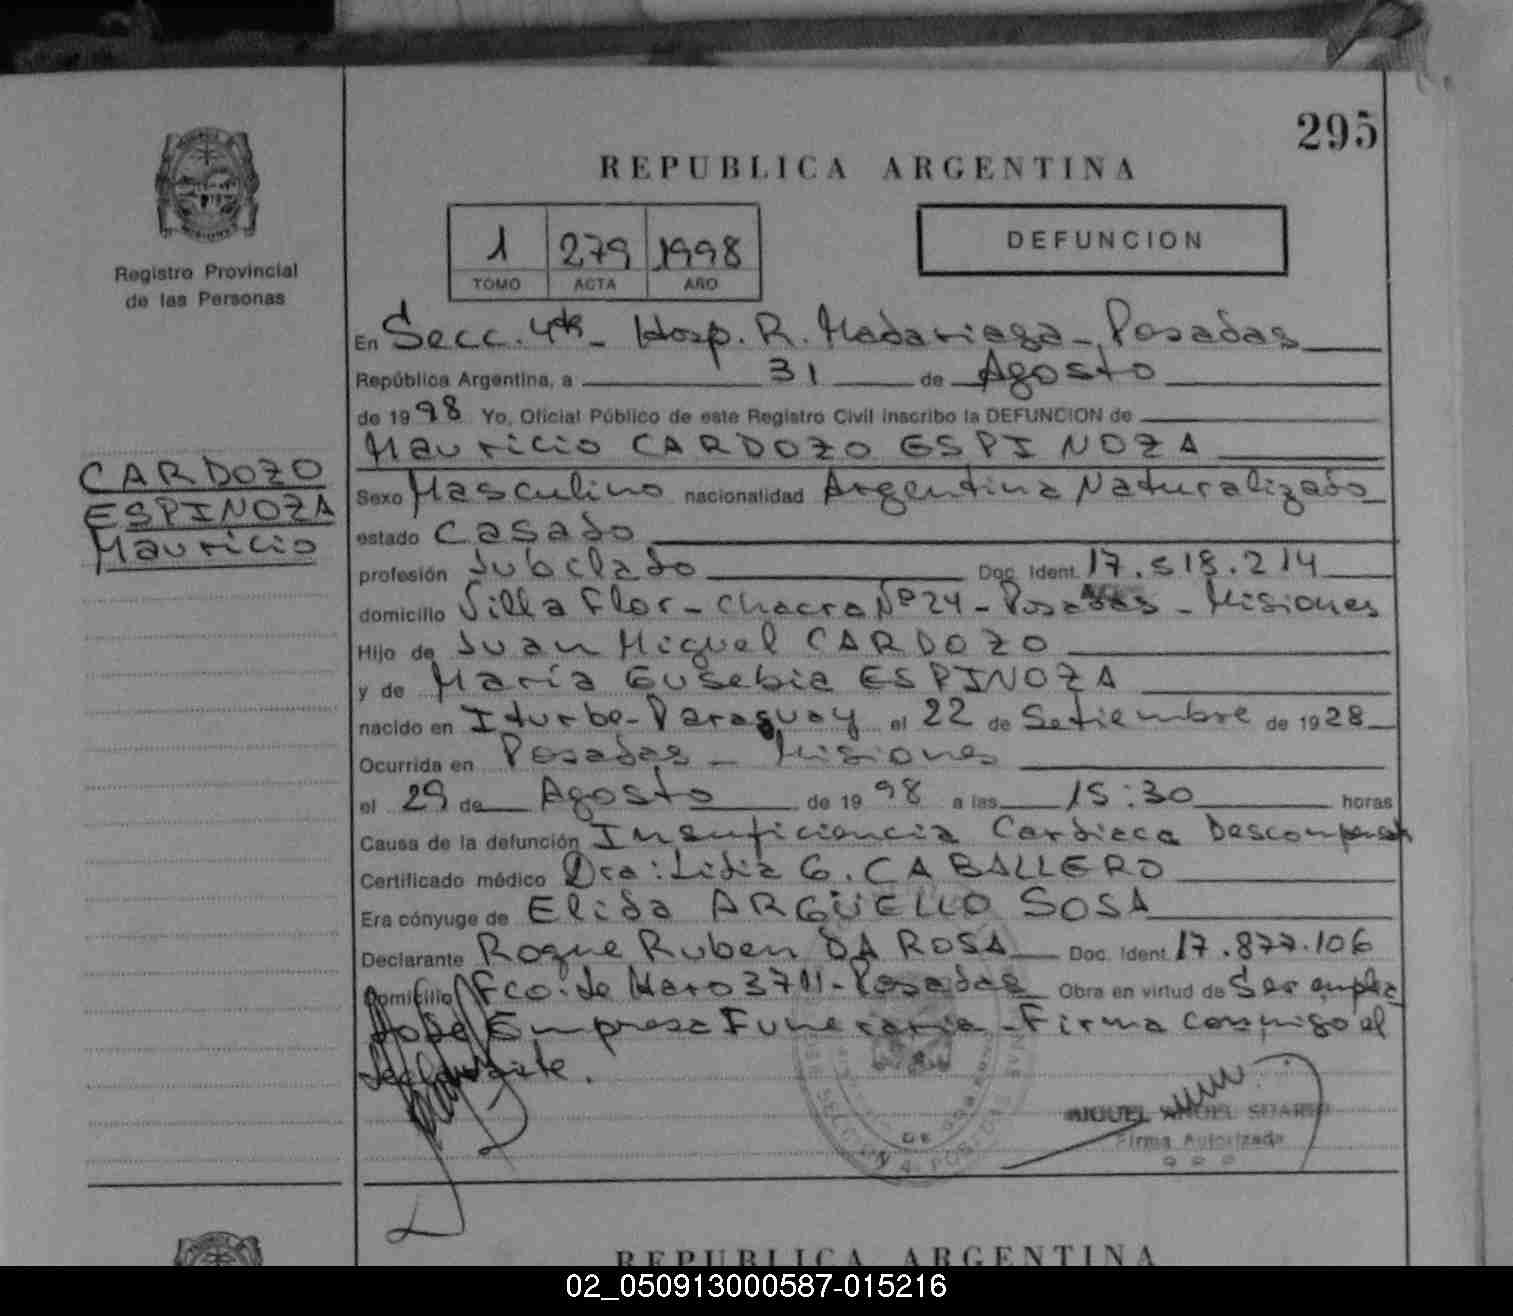 295
REPUBLICA ARGENTINA
1 279 1998
TOMO ACTA AÑO
DEFUNCION
Registro Provincial
de las Personas
CARDOZO
ESPINOZA
Mauricio
En Secc. 4ta - Hosp. R. Madariaga - Posadas
República Argentina, a 31 de Agosto
de 1998 Yo, Oficial Público de este Registro Civil inscribo la DEFUNCION de
Mauricio CARDOZO ESPINOZA
Sexo Masculino nacionalidad Argentina Naturalizado
estado Casado
profesión Jubilado Doc. Ident. 17.518.214
domicilio Villa Flor - Chacra Nº 24 - Posadas - Misiones
Hijo de Juan Miguel CARDOZO
y de María Eusebia ESPINOZA
nacido en Iturbe - Paraguay el 22 de Setiembre de 1928
Ocurrida en Posadas - Misiones
el 29 de Agosto de 1998 a las 15:30 horas
Causa de la defunción Insuficiencia Cardiaca Descompensad
Certificado médico Dra: Lidia G. CABALLERO
Era cónyuge de Elida ARGÜELLO SOSA
Declarante Roque Ruben DA ROSA Doc. Ident. 17.877.106
Domicilio Fco. de Haro 3711 - Posadas Obra en virtud de Ser emplea
do de Empresa Funeraria - Firma conmigo el
declarante.
MIGUEL ANGEL
Firma Autorizada
SECCION 4 POSADAS
DE
REPUBLICA ARGENTINA
02_050913000587-015216